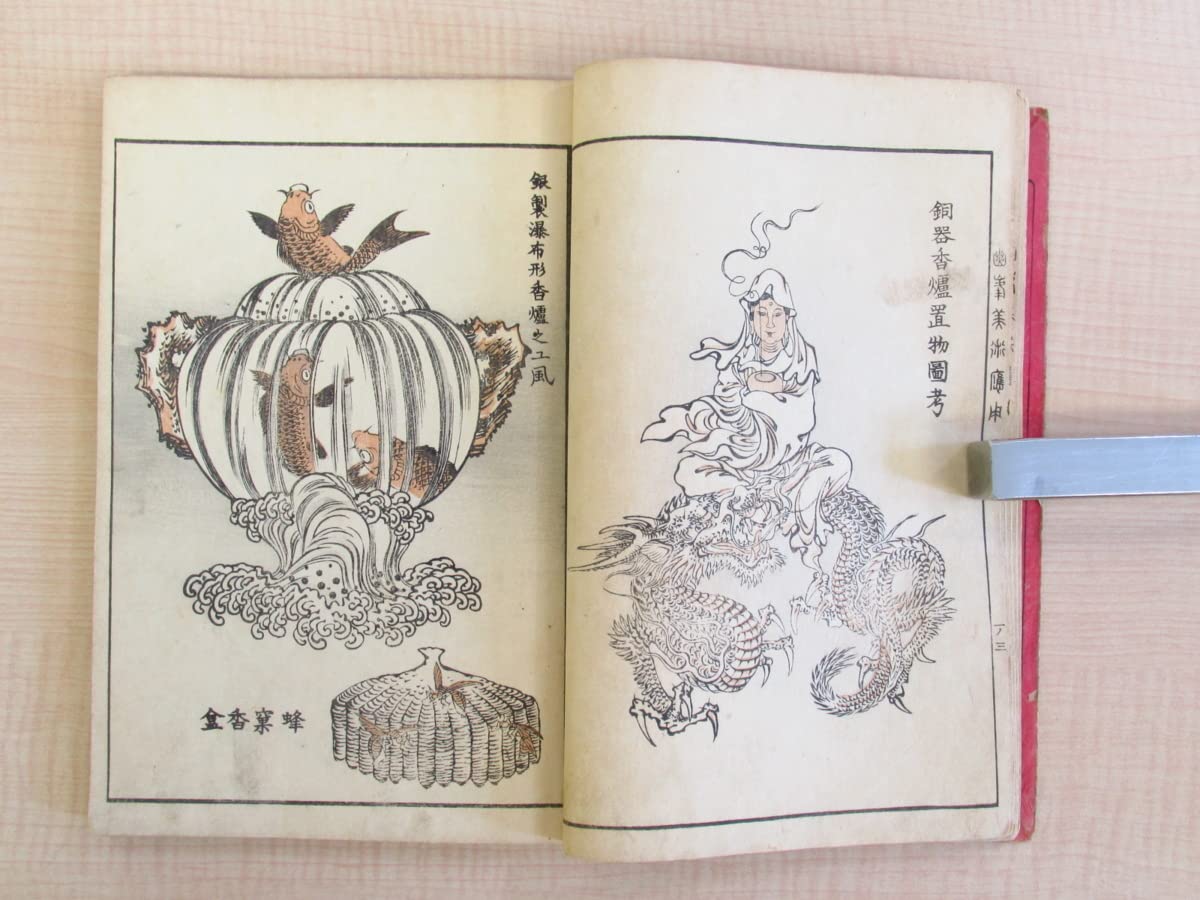 美術應用
銅器香爐置物圖考
銀製瀑布形香爐之工風
蜂窠香盒